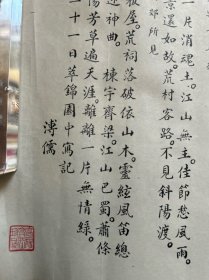 郊所見
一片消魂土。江山無主。佳節悲風雨。
景還如故。荒村客路。不見斜陽渡。
板屋。荒祠落破依山木。靈絃風笛總
迎神曲。 棟宇齊梁。江山巴蜀。蕭條
陽芳草遍天涯。離離一片無情綠。
二十一日萃錦園中寫記
溥儒